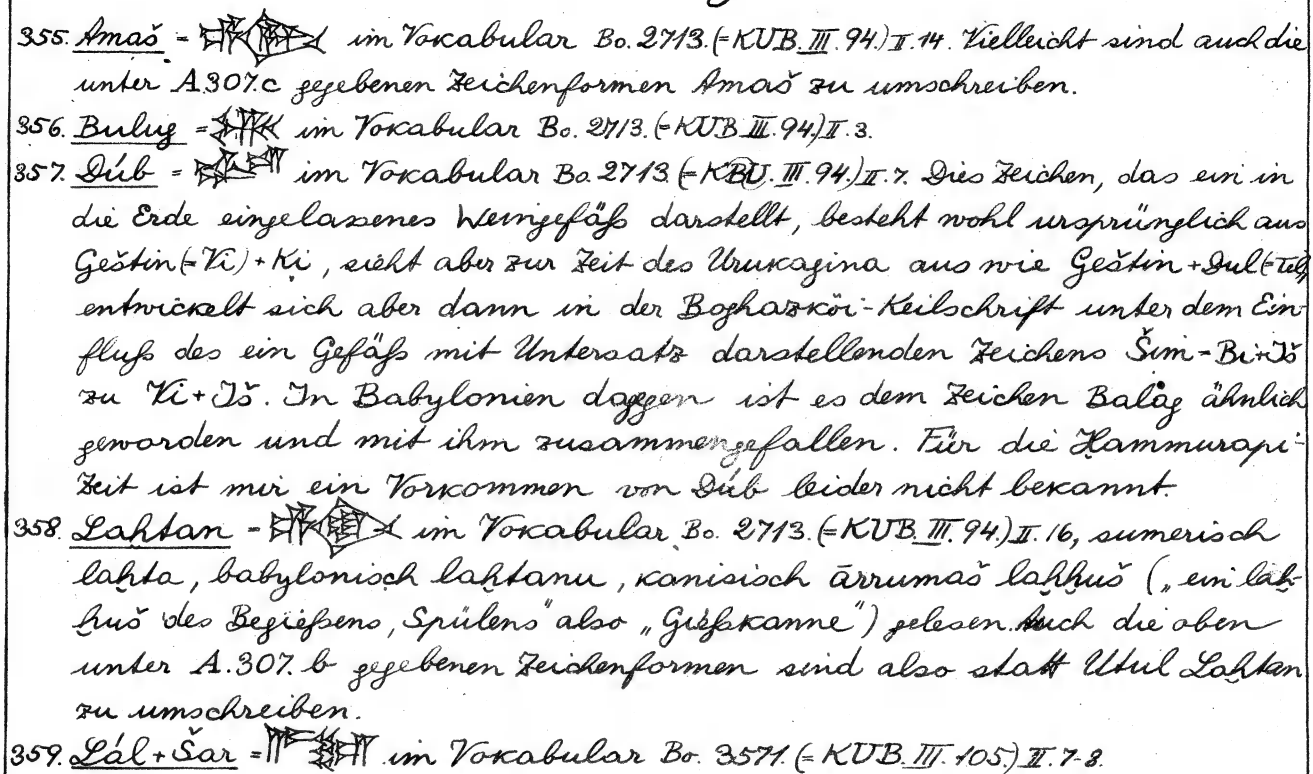 355. Amaš = im Vokabular Bo. 2713. (=KUB. III. 94) II. 14. Vielleicht sind auch die
unter A307.c gegebenen Zeichenformen Amaš zu umschreiben.
356. Bulug = im Vokabular Bo. 2713. (=KUB. III. 94.) II. 3.
357. Dúb = im Vokabular Bo. 2713 (=KBU. III. 94.) II. 7. Dies Zeichen, das ein in
die Erde eingelassenes Weingefäß darstellt, besteht wohl ursprünglich aus
Geštin (=Vi) + Ki, sieht aber zur Zeit des Urukagina aus wie Geštin + Dul (=Tel),
entwickelt sich aber dann in der Boghazköi-Keilschrift unter dem Ein-
fluß des ein Gefäß mit Untersatz darstellenden Zeichens Šim = Bi+Iš
zu Vi + Iš. In Babylonien dagegen ist es dem Zeichen Balag ähnlich
geworden und mit ihm zusammengefallen. Für die Ḫammurapi-
Zeit ist mir ein Vorkommen von Dúb leider nicht bekannt.
358. Laḫtan = im Vokabular Bo. 2713. (=KUB. III. 94.) II. 16, sumerisch
laḫta, babylonisch laḫtanu, kanisisch ārrumaš laḫḫuš („ein laḫ-
ḫuš des Begießens, Spülens" also „Gießkanne") gelesen. Auch die oben
unter A.307. b gegebenen Zeichenformen sind also statt Utul Laḫtan
zu umschreiben.
359. Lál + Šar = im Vokabular Bo. 3571. (=KUB. III. 105.) II. 7-8.